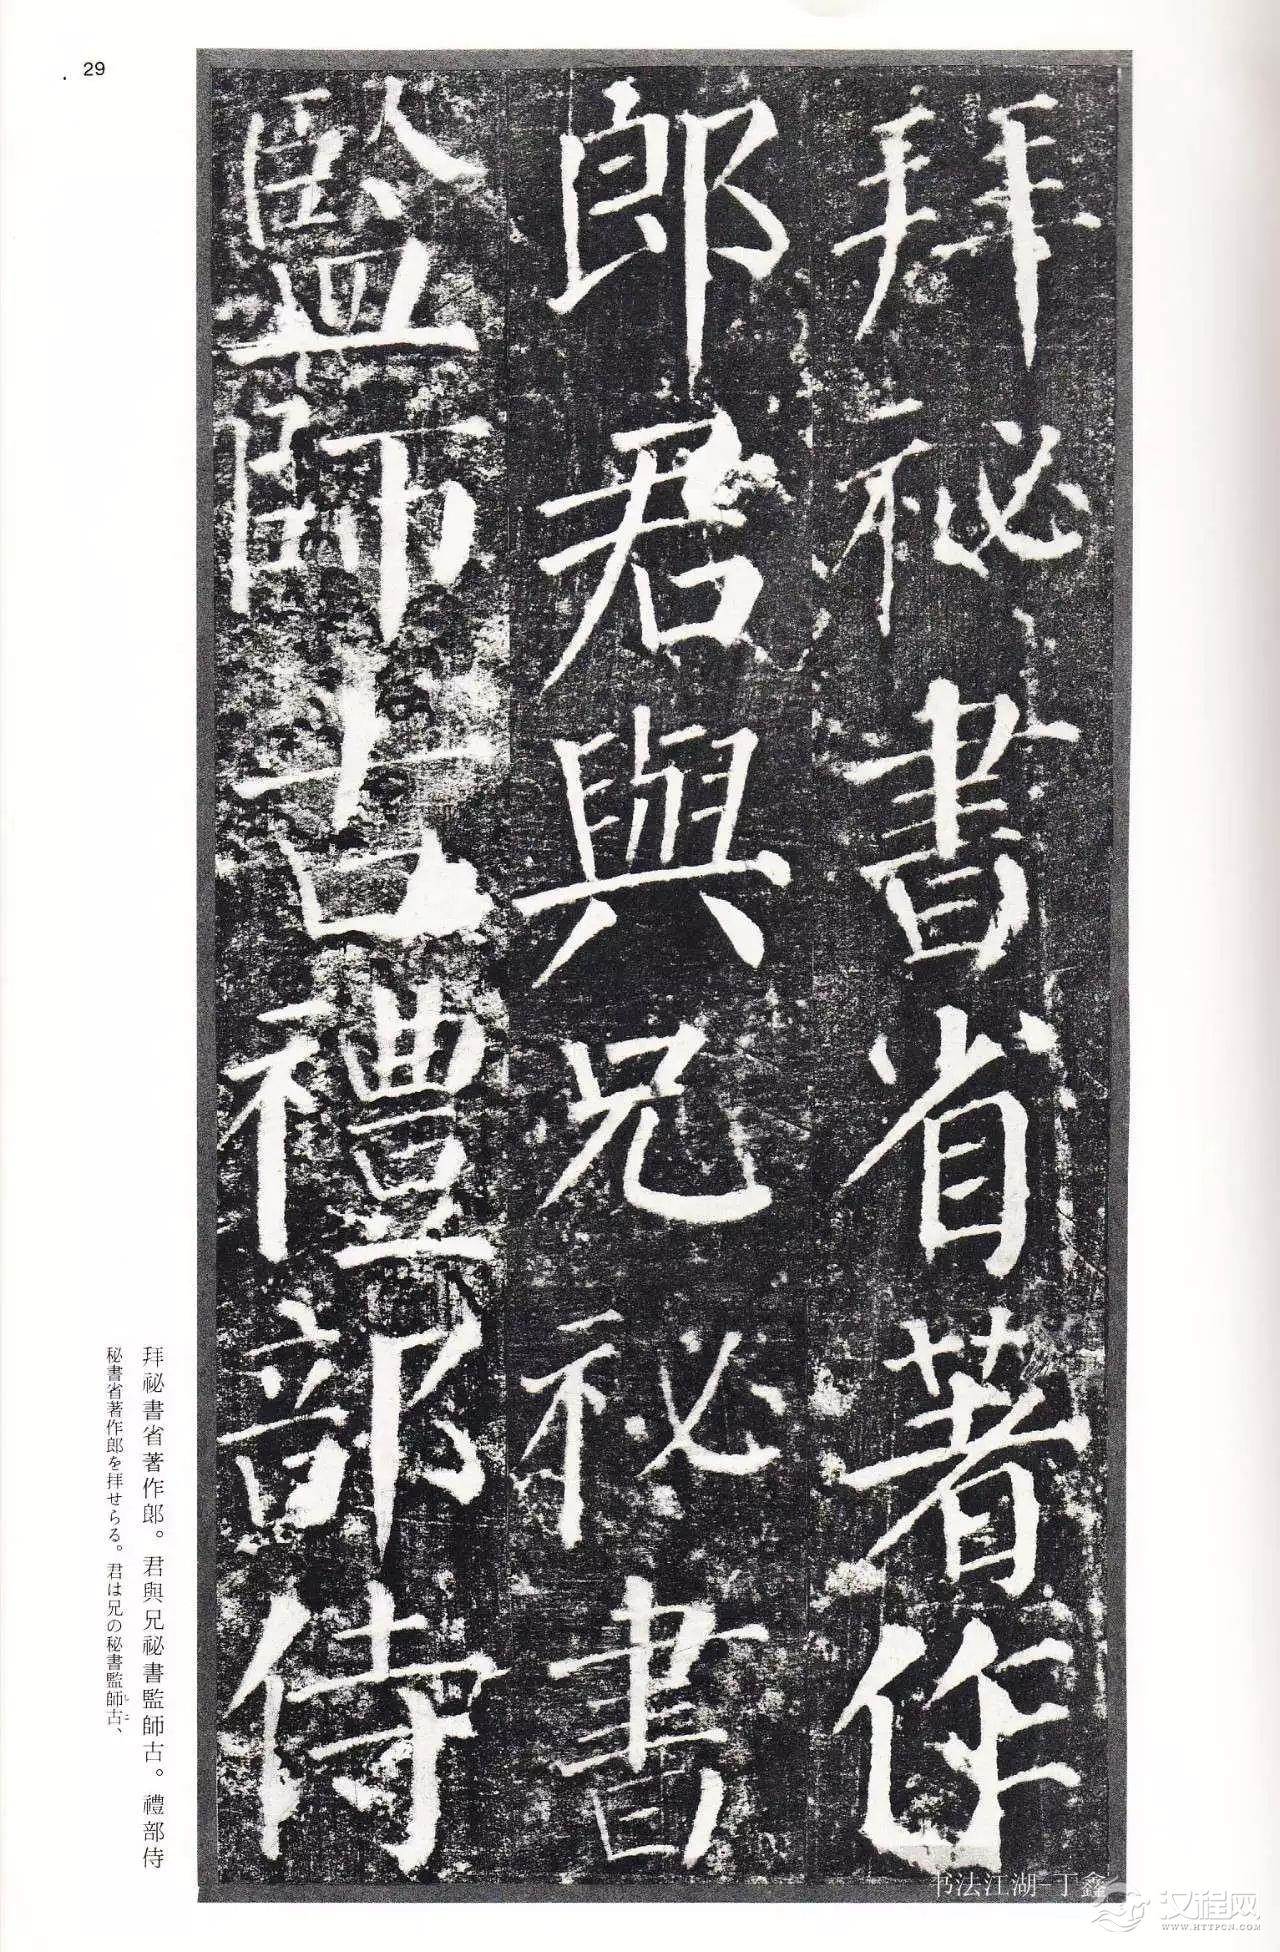 29
拜祕書省著作
郎君與兄祕書
監師古禮部侍
拜祕書省著作郎。君與兄祕書監師古。禮部侍
秘書省著作郎を拝せらる。君は兄の秘書監師古、
しこ
书法江湖-丁鑫
汉程网
WWW.HTTPCN.COM